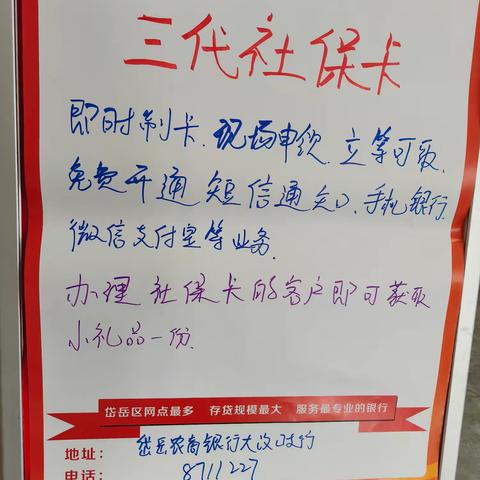 三代社保卡
即时制卡.现场申领.立等可取.
免费开通短信通知、手机银行.
微信支付宝等业务.
办理社保卡的客户即可获取
小礼品一份.
岱岳区网点最多 存贷规模最大 服务最专业的银行
地址: 岱岳农商银行大汶口支行
电话: 8711227